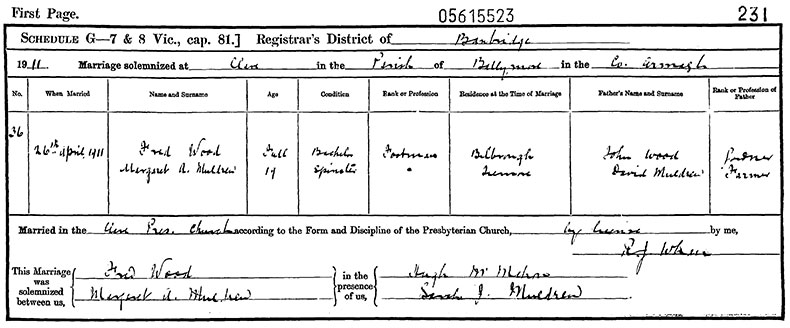 First Page. 05615523 231
SCHEDULE G—7 & 8 Vic., cap. 81.] Registrar's District of Banbridge
1911. Marriage solemnized at Clare in the Parish of Ballymore in the Co. Armagh
No. When Married Name and Surname Age Condition Rank or Profession Residence at the Time of Marriage Father's Name and Surname Rank or Profession of Father
36 26th April 1911 Fred Wood Full Bachelor Footman Bilbrough John Wood Gardner
Margaret A. Muldrew 19 Spinster David Muldrew Farmer
Married in the Clare Pres. Church according to the Form and Discipline of the Presbyterian Church, by license by me,
R J
This Marriage was solemnized between us, Fred Wood in the presence of us, Hugh
Margaret A. Muldrew Sarah J. Muldrew